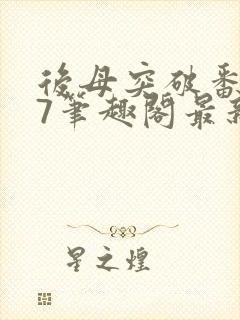 後母突破番
7筆趣閣最新
星之煌